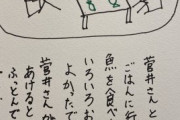 菅井さんと
ごはんに行
魚を食べ
いろいろお
よかったで
菅井さんが
あけると
ふとんで